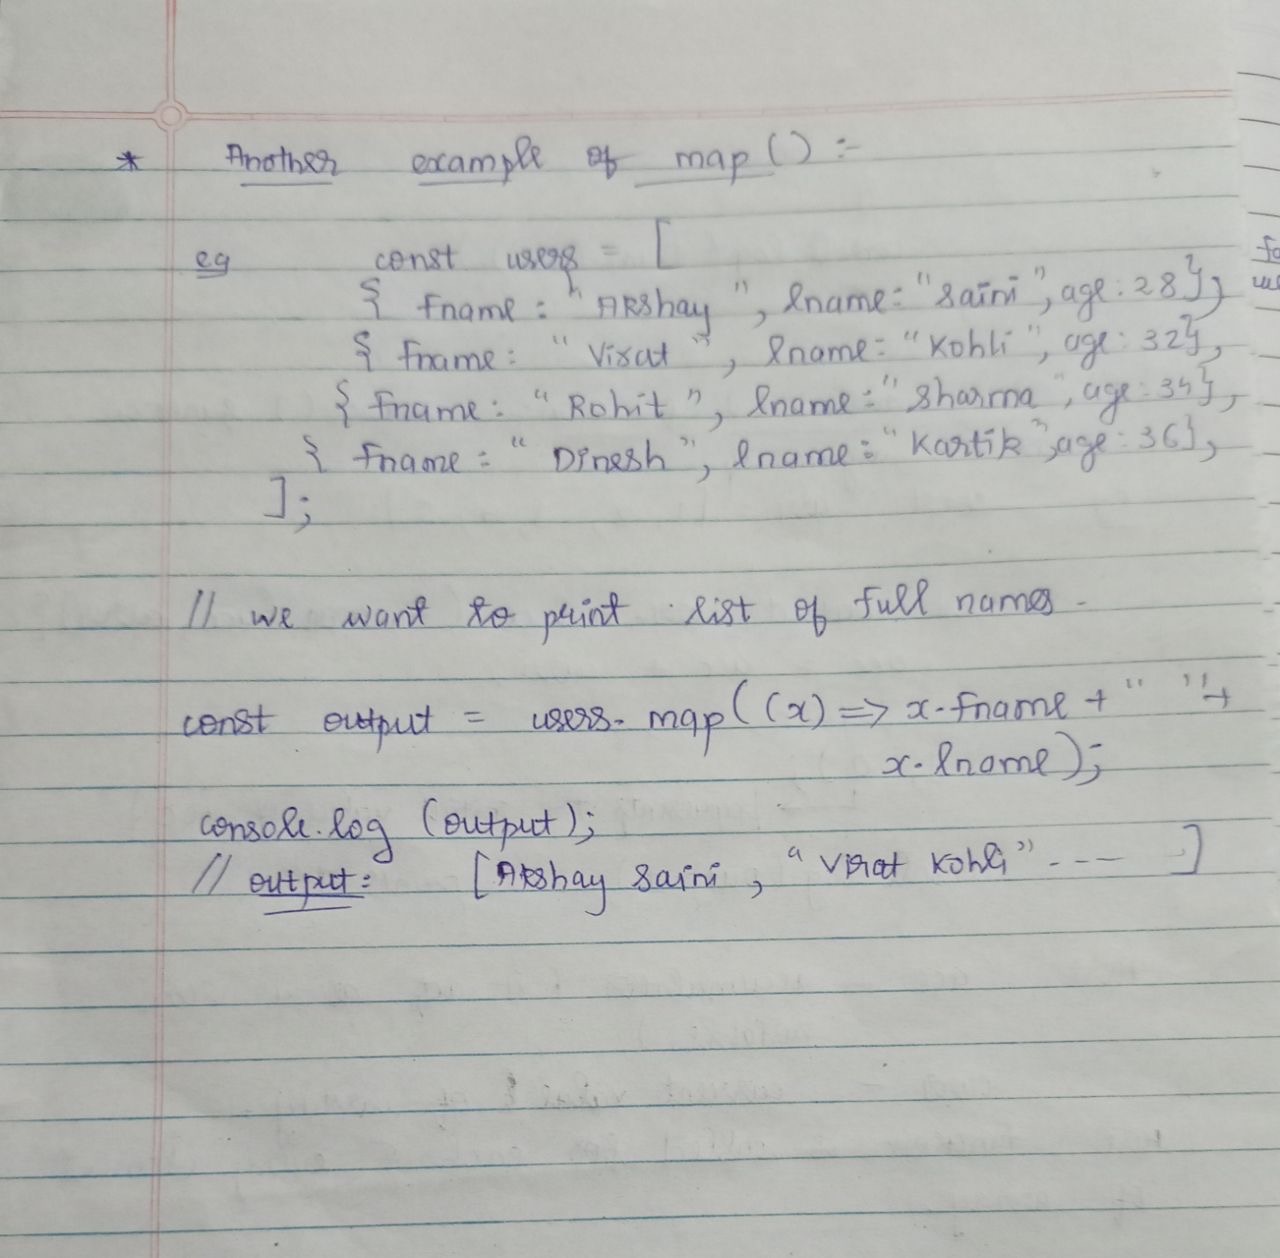 * Another example of map() :-
eg const users = [
{ fname : "Akshay", lname: "Saini", age: 28},
{ fname: "Virat", lname: "Kohli", age: 32},
{ fname: "Rohit", lname: "Sharma", age: 34},
{ fname: "Dinesh", lname: "Kartik", age: 36},
];
// we want to print list of full names.
const output = users.map((x) => x.fname + " " +
x.lname);
console.log (output);
// output: [Akshay Saini, "Virat Kohli" ---- ]